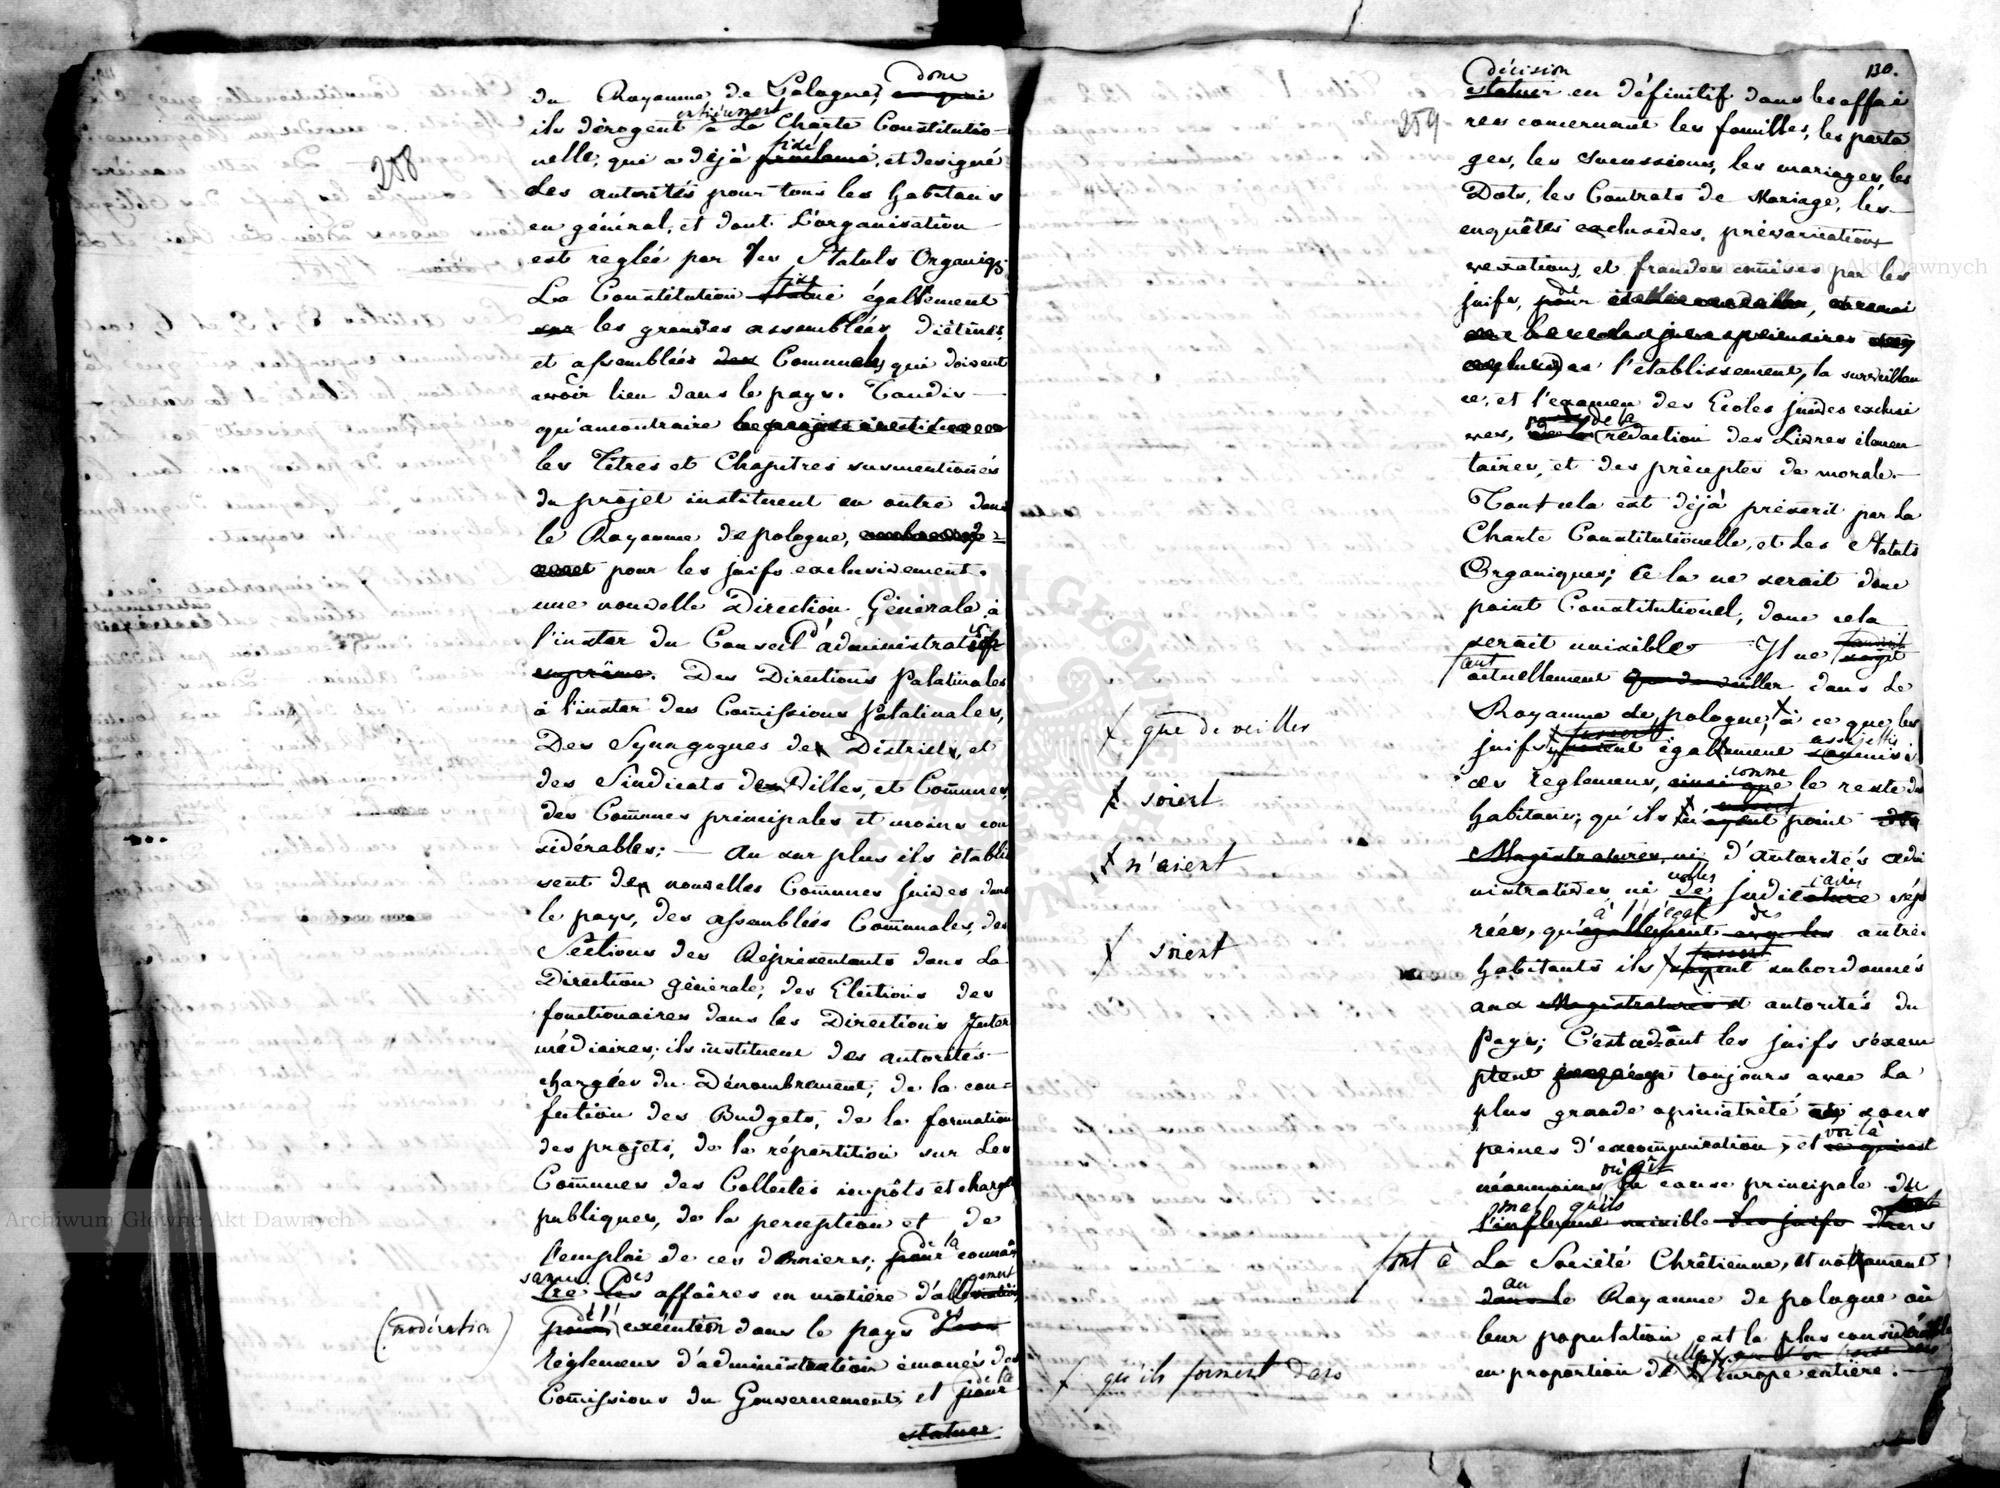 donc
du Royaume de Pologne,
entièrement
ils dérogent à La Charte Constitutio-
fixé
nelle, qui a déjà proclamé, et designé
258
Les autorités pour tous les habitans
en général, et dont L'organisation
est reglée par les Statuts Organiqs
fixe
La Constitution statue égallement
sur les grandes assemblées, diétines,
et assemblées des Communes, qui doivent
avoir lieu dans le pays. Tandis
qu'aucontraire
les Titres et Chapitres susmentionés
du projet instituent en outre dans
le Royaume de pologne,
pour les juifs exclusivement.
une nouvelle Direction Générale à
l'instar du Conseil d'administration
suprême. Des Directions Palatinales
à l'instar des Comissions Palatinales,
Des Synagogues de District, et
des Sindicats des Villes, et Communes,
des Communes principales et moins con
sidérables; — Au surplus ils établis
sent de nouvelles Communes juives dans
le pays, des assemblées Communales, des
Sections des Représentants dans La
Direction générale, des Elections des
fonctionaires dans les Directions Inter
médiaires; ils instituent des autorités
chargées du Dénombrement, de la con-
fection des Budgets, de la formation
des projets, de la répartition sur Les
Communes des Collectes impôts et charges
publiques, de la perception et de
de la
l'emploi de ces dernieres; pour connais
sance des
tre les affaires en matière d'
de l'
(modération)
pour exécution dans le pays des
règlemens d'administration émanés des
de la
Comissions du Gouvernement, et pour
statuer
décision
130.
statuer en définitif dans les affai
259
res concernant les familles, les parta
ges, les successions, les mariages, les
Dots, les Contrats de Mariage, les
enquêtes exclusives, prévarications
vexations, et fraudes comises par les
juifs, pour
de l'établissement, la surveillan
ce, et l'examen des Ecoles juives exclusi
de la
ves, rédaction des Livres élémen
taires, et des préceptes de morale.
Tout cela est déjà préscrit par La
Charte Constitutionelle, et Les Statuts
Organiques; Cela ne serait donc
point Constitutionel, donc cela
serait nuisible. Il ne faudrait
s'agit
actuellement que de veiller dans Le
Royaume de pologne, à ce que les
X que de veiller
fussent assujettis
juifs soient égallement soumis
X soient
comme
des règlemens, ainsi que le reste des
habitans; qu'ils n'ayent point des
Magistratures, ni d'autorités admi
X n'aient
nistratives ni de judicature sépa
à l'égal des
rées, qu'égallement avec les autres
fussent
habitants ils soyent subordonnés
X soient
aux Magistratures et autorités du
Pays; C'est ce dont les juifs s'exem
ptent jusqu'ici toujours avec La
plus grande opiniatrèté sous
voilà
peines d'excommunication, et ce qui est
où gît
néanmoins la cause principale du
mal qu'ils
l'influence nuisible des juifs dans
font à
La Société Chrêtienne, et notament
au
dans le Royaume de pologne où
leur population est la plus considérable
X qu'ils forment dans
en proportion de l'Europe entière.